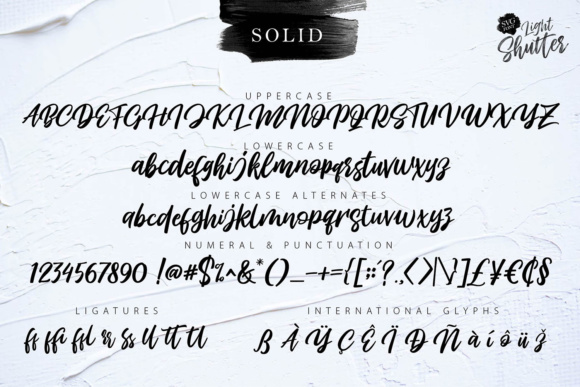 SOLID
SVG FONT
Light Shutter
UPPERCASE
ABCDEFGHIJKLMNOPQRSTUVWXYZ
LOWERCASE
abcdefghijklmnopqrstuvwxyz
LOWERCASE ALTERNATES
abcdefghijklmnopqrstuvwxyz
NUMERAL & PUNCTUATION
1234567890 !@#$%^&*()_-+={[::'?.,<>|\}]£¥€₵$
LIGATURES
INTERNATIONAL GLYPHS
ß À Ÿ Ç Ê Ï Đ Ñ à í ô ü ž